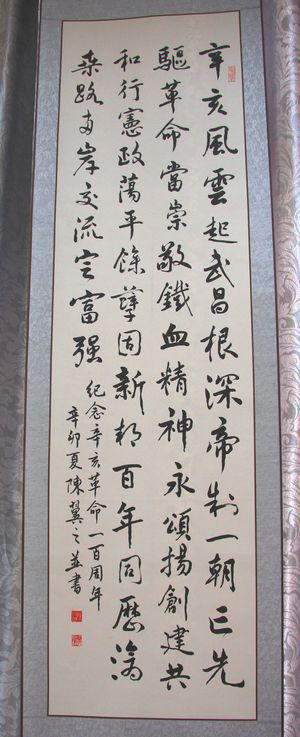 辛亥風雲起武昌根深帝制一朝亡先
驅革命當崇敬鐵血精神永頌揚創建共
和行憲政蕩平餘孽固新邦百年同歷滄
桑路兩岸交流定富强
紀念辛亥革命一百周年
辛卯夏陳翼之並書